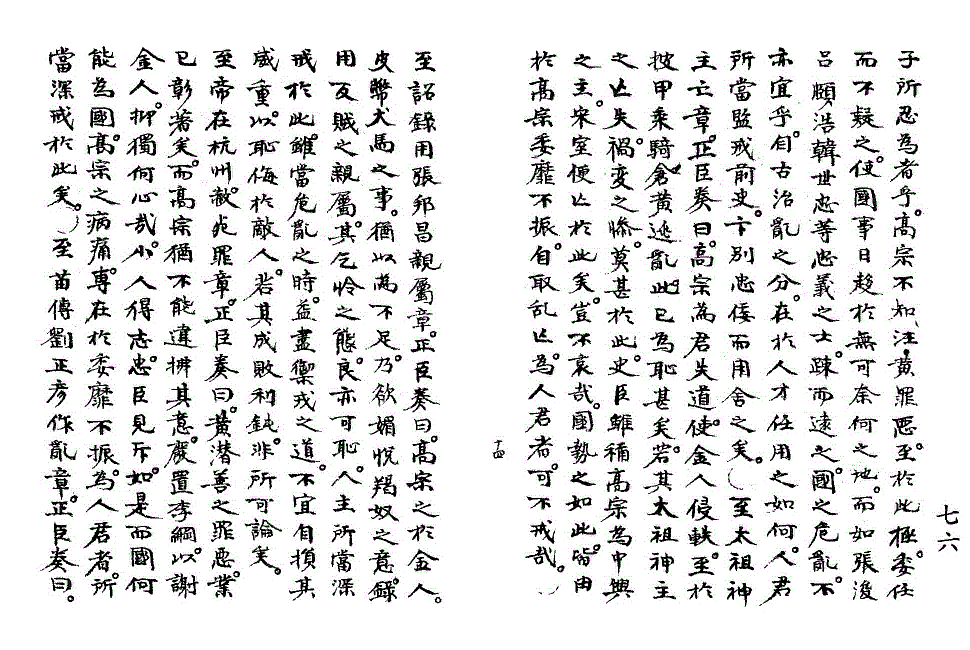 七六
子所忍為者乎。高宗不知汪黄罪惡。至於此極。委任
而不疑之。使國事日趍於無可奈何之地。而如張浚
呂頤浩韓世忠等忠義之士。踈而遠之。國之危亂。不
亦宜乎。自古治亂之分。在於人才任用之如何。人君
所當監戒前史。卞別忠佞而用舍之矣。至太祖神
主亡章。正臣奏曰。高宗為君失道。使金人侵軼。至於
披甲乘騎。倉黄逃亂。此已為恥甚矣。若其太祖神主
之亡失。禍變之慘。莫甚於此。史臣雖稱高宗為中興
之主。宋室便亡於此矣。豈不哀哉。國勢之如此。皆由
於高宗委靡不振。自取乱亡。為人君者。可不戒哉。
十四
至詔錄用張邦昌親屬章。正臣奏曰。高宗之於金人。
皮幣犬馬之事。猶以為不足。乃欲媚悅羯奴之意。錄
用反賊之親屬。其乞怜之態。良亦可恥。人主所當深
戒於此。雖當危亂之時。益盡禦戎之道。不宜自損其
威重。以恥侮於敵人。若其成敗利鈍。非所可論矣。
至帝在杭州赦死罪章。正臣奏曰。黃潛善之罪惡業
已彰著矣。而高宗猶不能違拂其意。廢置李綱。以謝
金人。抑獨何心哉。小人得志。忠臣見斥。如是而國何
能為國。高宗之病痛。專在於委靡不振。為人君者。所
當深戒於此矣。至苗傅劉正彥作亂章。正臣奏曰。